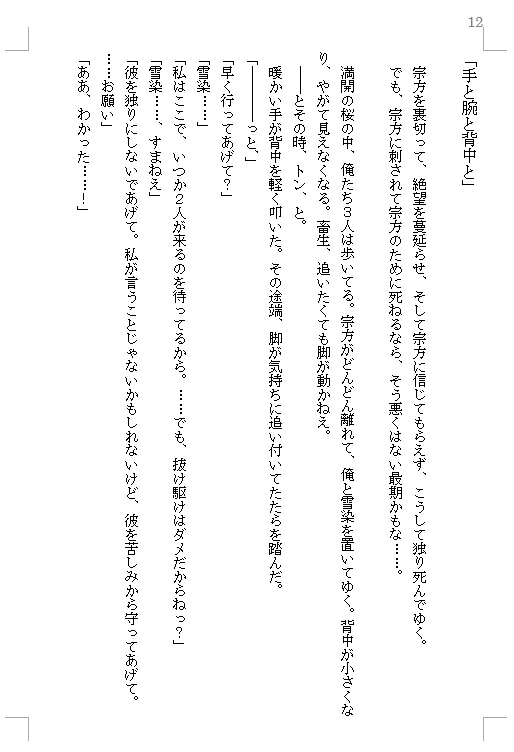 12
「手と腕と背中と」
宗方を裏切って、絶望を蔓延らせ、そして宗方に信じてもらえず、こうして独り死んでゆく。
でも、宗方に刺されて宗方のために死ねるなら、そう悪くはない最期かもな……。
満開の桜の中、俺たち３人は歩いてる。宗方がどんどん離れて、俺と雪染を置いてゆく。背中が小さくな
り、やがて見えなくなる。畜生、追いたくても脚が動かねえ。
――とその時、トン、と。
暖かい手が背中を軽く叩いた。その途端、脚が気持ちに追い付いてたたらを踏んだ。
「―――っと、」
「早く行ってあげて？」
「雪染……」
「私はここで、いつか２人が来るのを待ってるから。……でも、抜け駆けはダメだからねっ？」
「雪染……、すまねえ」
「彼を独りにしないであげて。私が言うことじゃないかもしれないけど、彼を苦しみから守ってあげて。
……お願い」
「ああ、わかった……！」